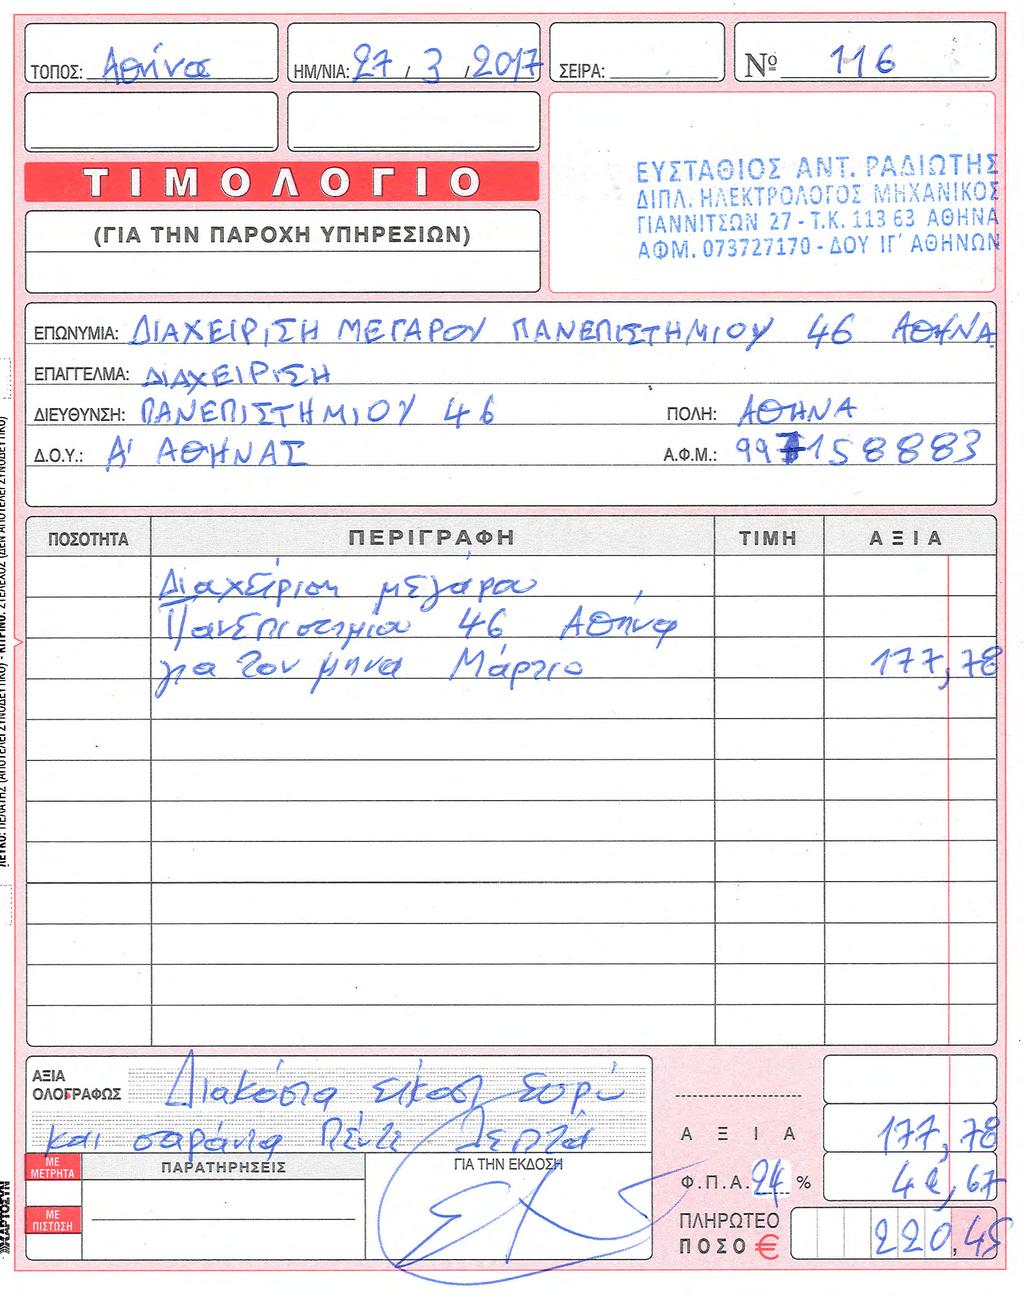 ΤΟΠΟΣ: Αθήνα ΗΜ/ΝΙΑ: 27 / 3 / 2017 ΣΕΙΡΑ: Νº 116
ΤΙΜΟΛΟΓΙΟ
(ΓΙΑ ΤΗΝ ΠΑΡΟΧΗ ΥΠΗΡΕΣΙΩΝ)
ΕΥΣΤΑΘΙΟΣ ΑΝΤ. ΡΑΔΙΩΤΗΣ
ΔΙΠΛ. ΗΛΕΚΤΡΟΛΟΓΟΣ ΜΗΧΑΝΙΚΟΣ
ΓΙΑΝΝΙΤΣΩΝ 27 - Τ.Κ. 113 63 ΑΘΗΝΑ
ΑΦΜ. 073727170 - ΔΟΥ ΙΓ' ΑΘΗΝΩΝ
ΕΠΩΝΥΜΙΑ: ΔΙΑΧΕΙΡΙΣΗ ΜΕΓΑΡΟΥ ΠΑΝΕΠΙΣΤΗΜΙΟΥ 46 ΑΘΗΝΑ
ΕΠΑΓΓΕΛΜΑ: ΔΙΑΧΕΙΡΙΣΗ
ΔΙΕΥΘΥΝΣΗ: ΠΑΝΕΠΙΣΤΗΜΙΟΥ 46 ΠΟΛΗ: ΑΘΗΝΑ
Δ.Ο.Υ.: Α' ΑΘΗΝΑΣ Α.Φ.Μ.:
ΠΟΣΟΤΗΤΑ ΠΕΡΙΓΡΑΦΗ ΤΙΜΗ ΑΞΙΑ
Διαχείριση μεγάρου
Πανεπιστημίου 46 Αθήνα
για τον μήνα Μάρτιο 177,78
ΑΞΙΑ
ΟΛΟΓΡΑΦΩΣ Διακόσια είκοσι ευρώ
και σαράντα πέντε λεπτά
ΑΞΙΑ 177,78
Φ.Π.Α. 24 % 42,67
ΠΛΗΡΩΤΕΟ
ΠΟΣΟ € 220,45
ΜΕ
ΜΕΤΡΗΤΑ
ΠΑΡΑΤΗΡΗΣΕΙΣ
ΓΙΑ ΤΗΝ ΕΚΔΟΣΗ
ΜΕ
ΠΙΣΤΩΣΗ